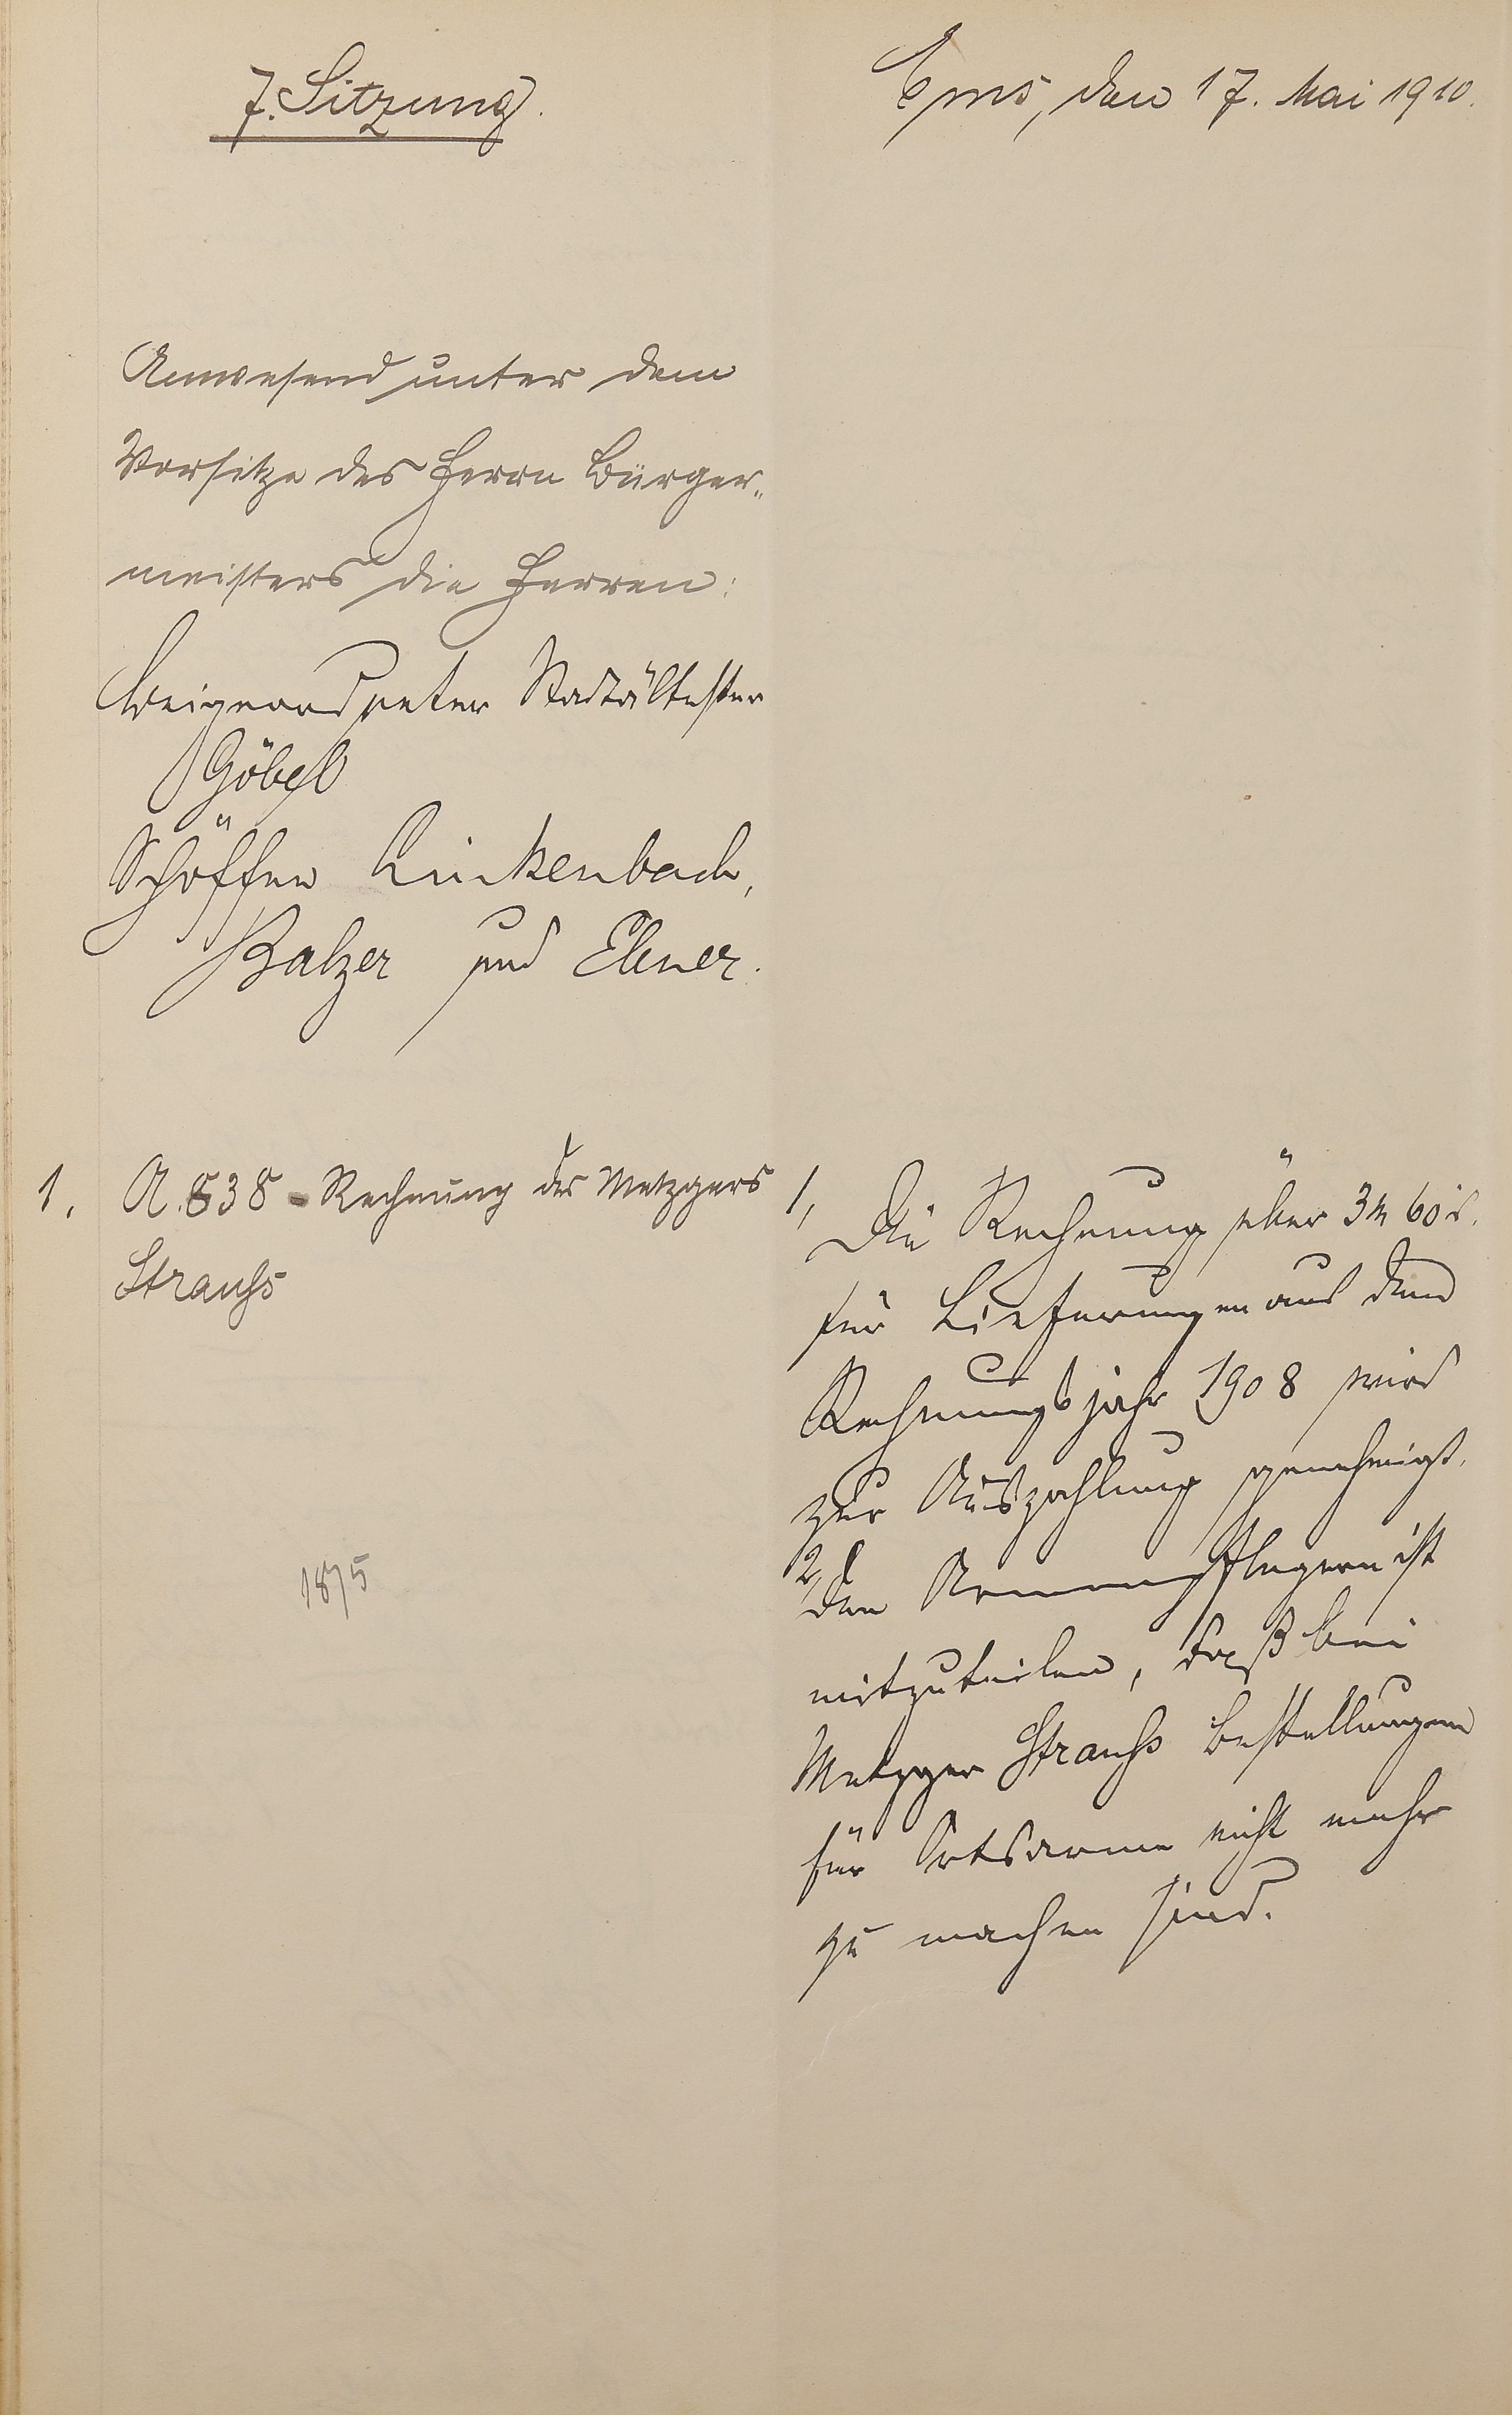 7. Sitzung.
Ems, den 17. Mai 1910.
Anwesend unter dem
Vorsitze des Herrn Bürger-
meisters die Herren:
Beigeordneter Stadtältester
Göbel
Schöffen Linkenbach,
Balzer und Ebner.
1. A. 538 - Rechnung des Metzgers
Strauß
1875
1, Die Rechnung über 3 M 60 d.
für Lieferungen aus dem
Rechnungsjahr 1908 wird
zur Auszahlung genehmigt.
2, Den Armenpflegern ist
mitzuteilen, daß bei
Metzger Strauß Bestellungen
für Ortsarme nicht mehr
zu machen sind.